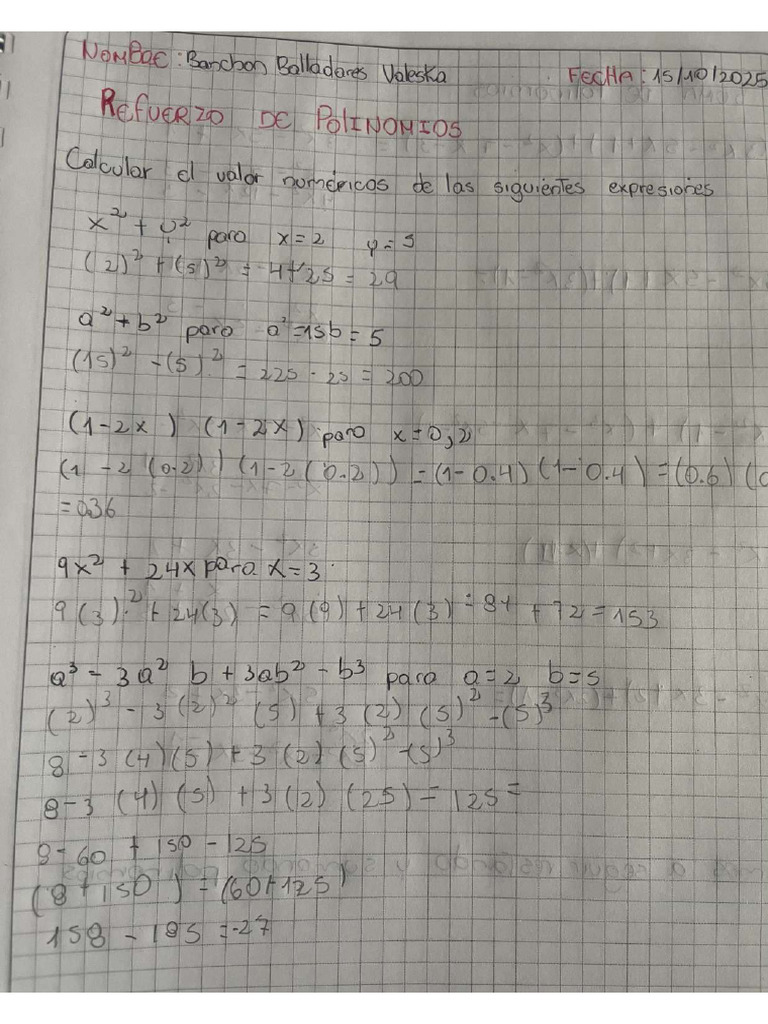 NOMBRE: Banchon Balladares Valeska FECHA: 15/10/2025
REFUERZO DE POLINOMIOS
Calcular el valor numéricos de las siguientes expresiones
x² + y² para x=2 y=5
(2)² + (5)² = 4+25 = 29
a² + b² para a²=15 b=5
(15)² - (5)² = 225 - 25 = 200
(1-2x) (1-2x) para x=0,2
(1 - 2 (0.2)) (1-2 (0.2)) = (1-0.4) (1-0.4) = (0.6) (0
= 0.36
9x² + 24x para x=3
9(3)² + 24(3) = 9(9) + 24(3) = 81 + 72 = 153
a³ - 3a² b + 3ab² - b³ para a=2 b=5
(2)³ - 3(2)² (5) + 3 (2) (5)² - (5)³
8 - 3 (4) (5) + 3 (2) (5)² - (5)³
8-3 (4) (5) + 3 (2) (25) = 125 =
8-60 + 150 - 125
(8 + 150) = (60+125)
158 - 185 = -27